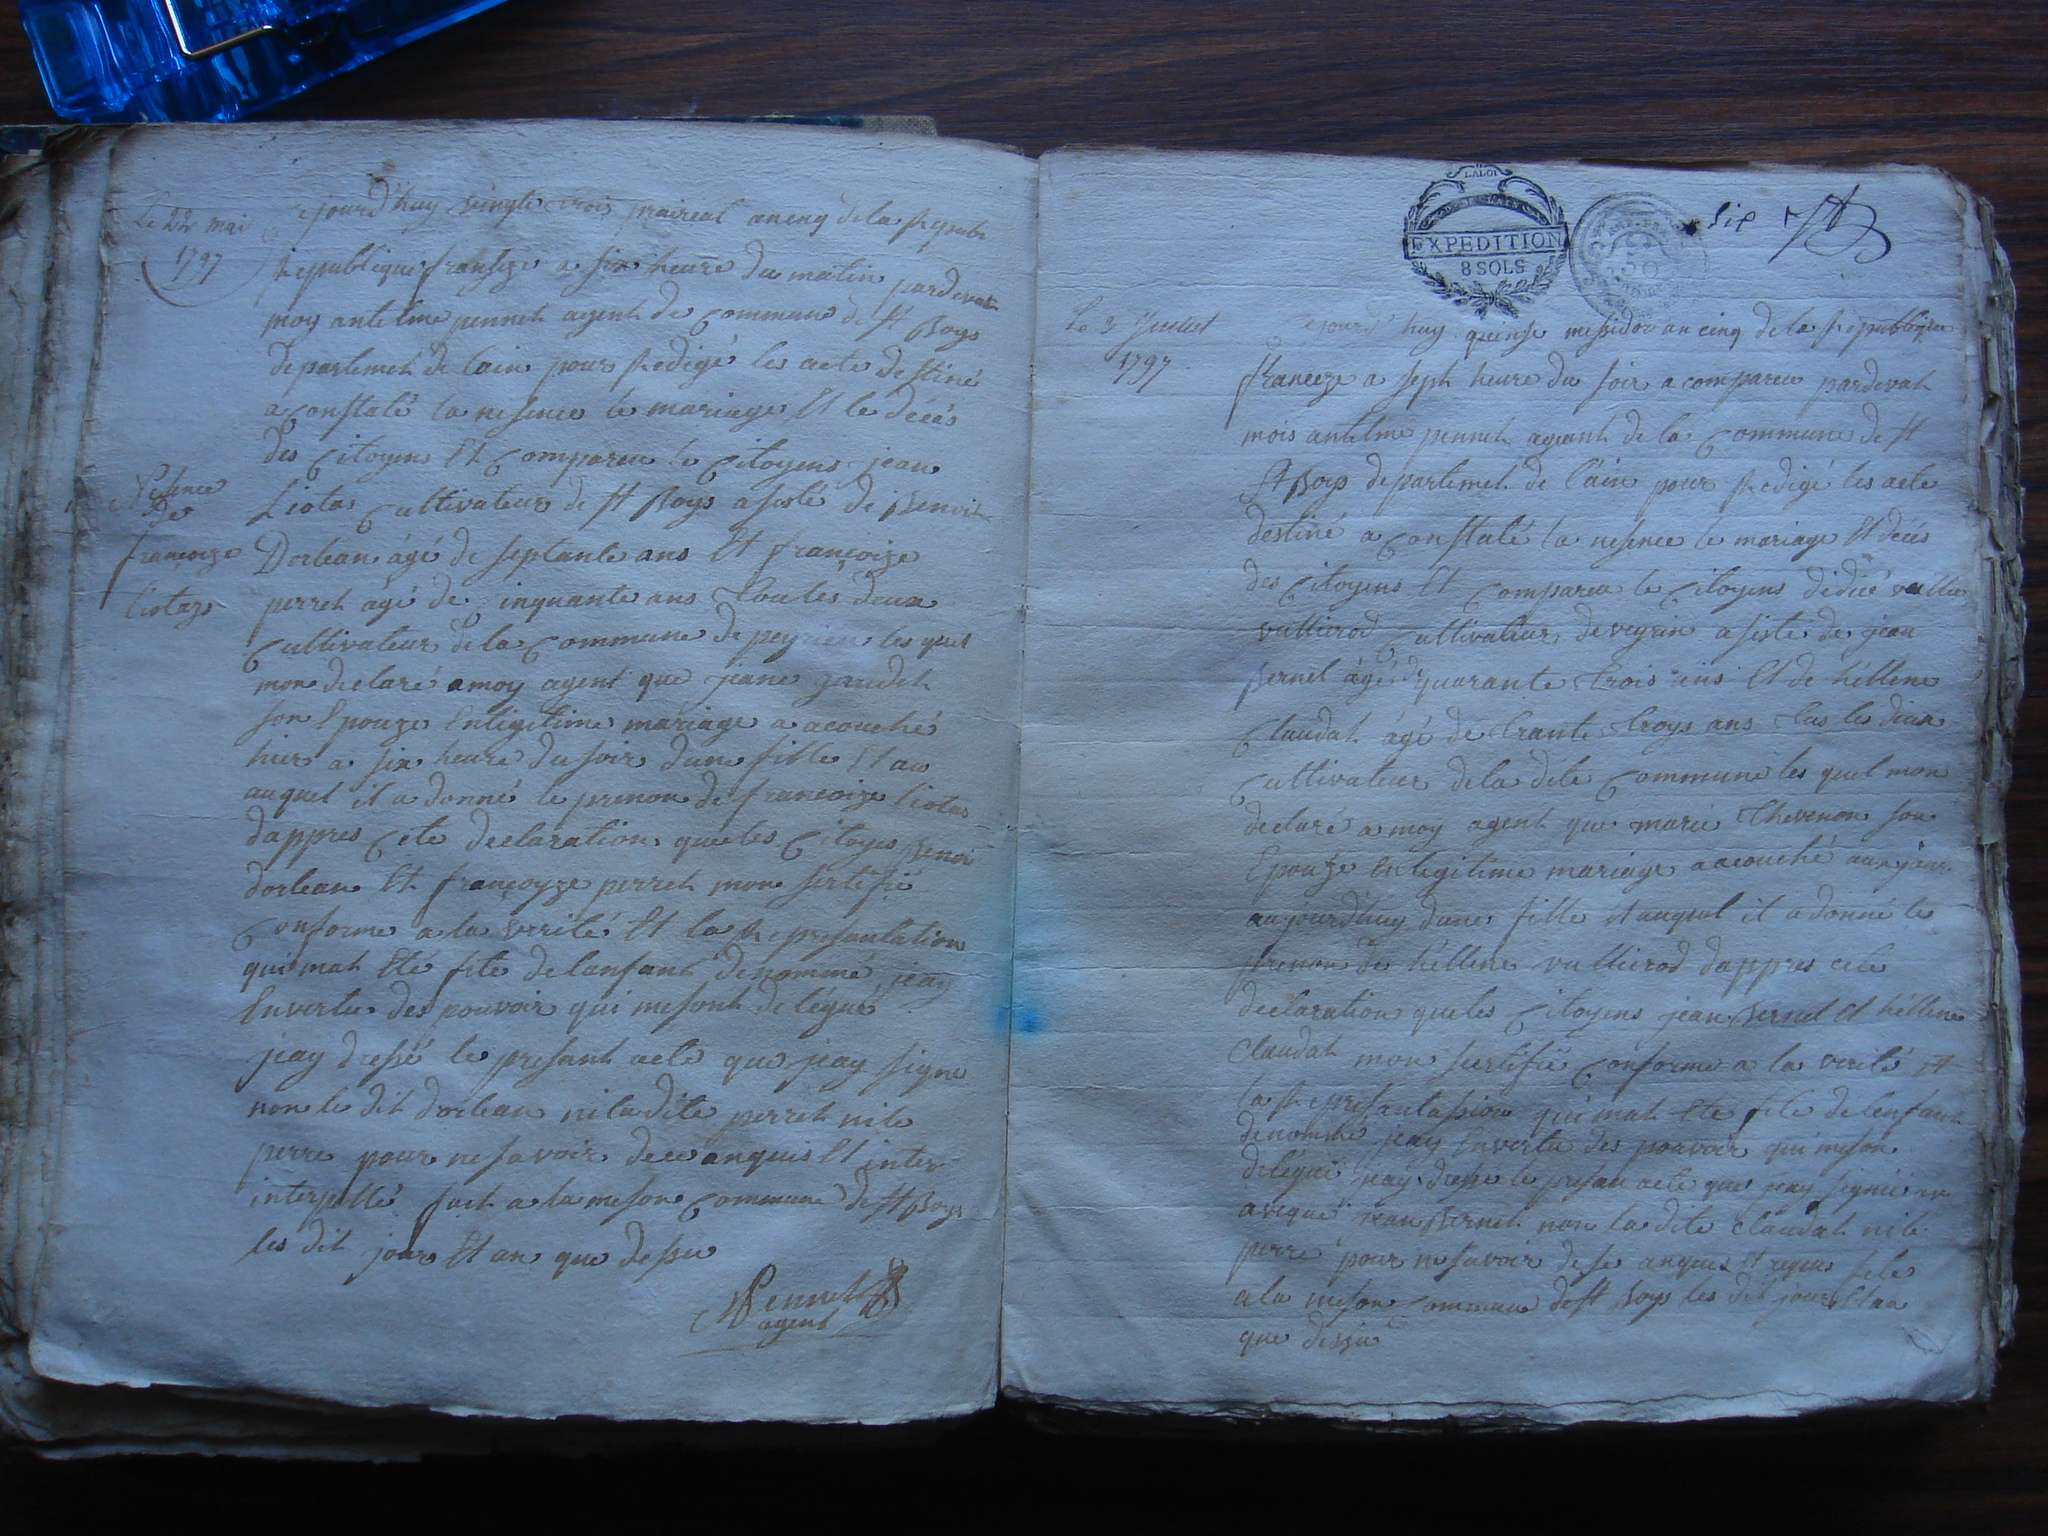 Le 22 mai
1797
ce jourd'huy vingte trois praireal an cinq de la Republi
Republique franseze a six heure du matin pardevan
moy antelme pennet agent de commune de St Boys
departemet de l'ain pour Redigé les acte destiné
a constaté la nesence le mariage Et le décès
des citoyens Et compareu le citoyens jean
Nesence
de
françoize
liotar
Liotar cultivateur de St Boys asisté de Benoit
Dorlean âgé de septante ans Et françoize
perret âgé de inquante ans tou les deux
cultivateur de la commune de peyrieu les quel
mon declaré a moy agent que jeane gaudet
son Epouze Entegitime mariage a acouché
hier a six heure du soir dune fille Et au
auquel il a donné le prenon de françoize liotar
dappres cete declaration que les citoyes Benoi
dorlean Et françoyze perret mon sertifié
conforme a la verité Et la Represantation
qui mat Eté fete de lanfant denommé jeay
Envertu des pouvoir qui mesont delégué
jeay dressé le presant acte que jeay signe
non le dit dorlean ni la dite perret ni le
perre pour ne savoir de ce anquis Et inter
interpellé fait a la meson commune de St Boys
les dit jour Et an que dessu
Pennet
agent
LA LOI
EXPEDITION
8 SOLS
six
Le 3 Juillet
1797
ce jourd'huy quinse messidor an cinq de la Republique
franceze a sept heure du soir a compareu pardevat
mois antelme pennet ageant de la commune de St
St Boys departemet de l'ain pour Redigé les acte
destiné a constaté la nesence le mariage Et décés
des citoyens Et compareu le citoyens didié vullie
vullierod cultivateur de veyrin asisté de jean
Bernet âgé de quarante trois ens Et de héllene
Claudat âgé de trante troys ans tus les deux
cultivateur de la dite commune les quel mon
declaré a moy agent que marie thevenon son
Epouze En legitime mariage a acouché aujour
aujourdhuy dune fille Et auquel il a donné le
prenon de héllene vullierod dappres cete
declaration que les citoyens jean Bernet Et héllene
Claudat mon sertifié conforme a la verité Et
la Represantassion qui mat Eté fete de lenfant
denommé jeay Envertu des pouvoir qui meson
delégué jeay dressé le presan acte que jeay signié
aveque jean Bernet non la dite claudat ni le
perre pour ne savoir de se anquis Et fete
a la meson commune de St Boys les dit jour Et an
que dessu